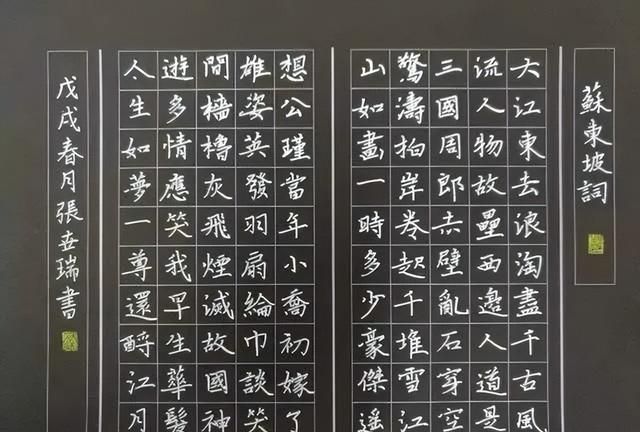 蘇東坡詞
大江東去浪淘盡千古風
流人物故壘西邊人道是
三國周郎赤壁亂石穿空
驚濤拍岸卷起千堆雪江
山如畫一時多少豪傑遥
想公瑾當年小喬初嫁了
雄姿英發羽扇綸巾談笑
間檣櫓灰飛煙滅故國神
遊多情應笑我早生華髮
人生如夢一尊還酹江月
戊戌春月張世瑞書